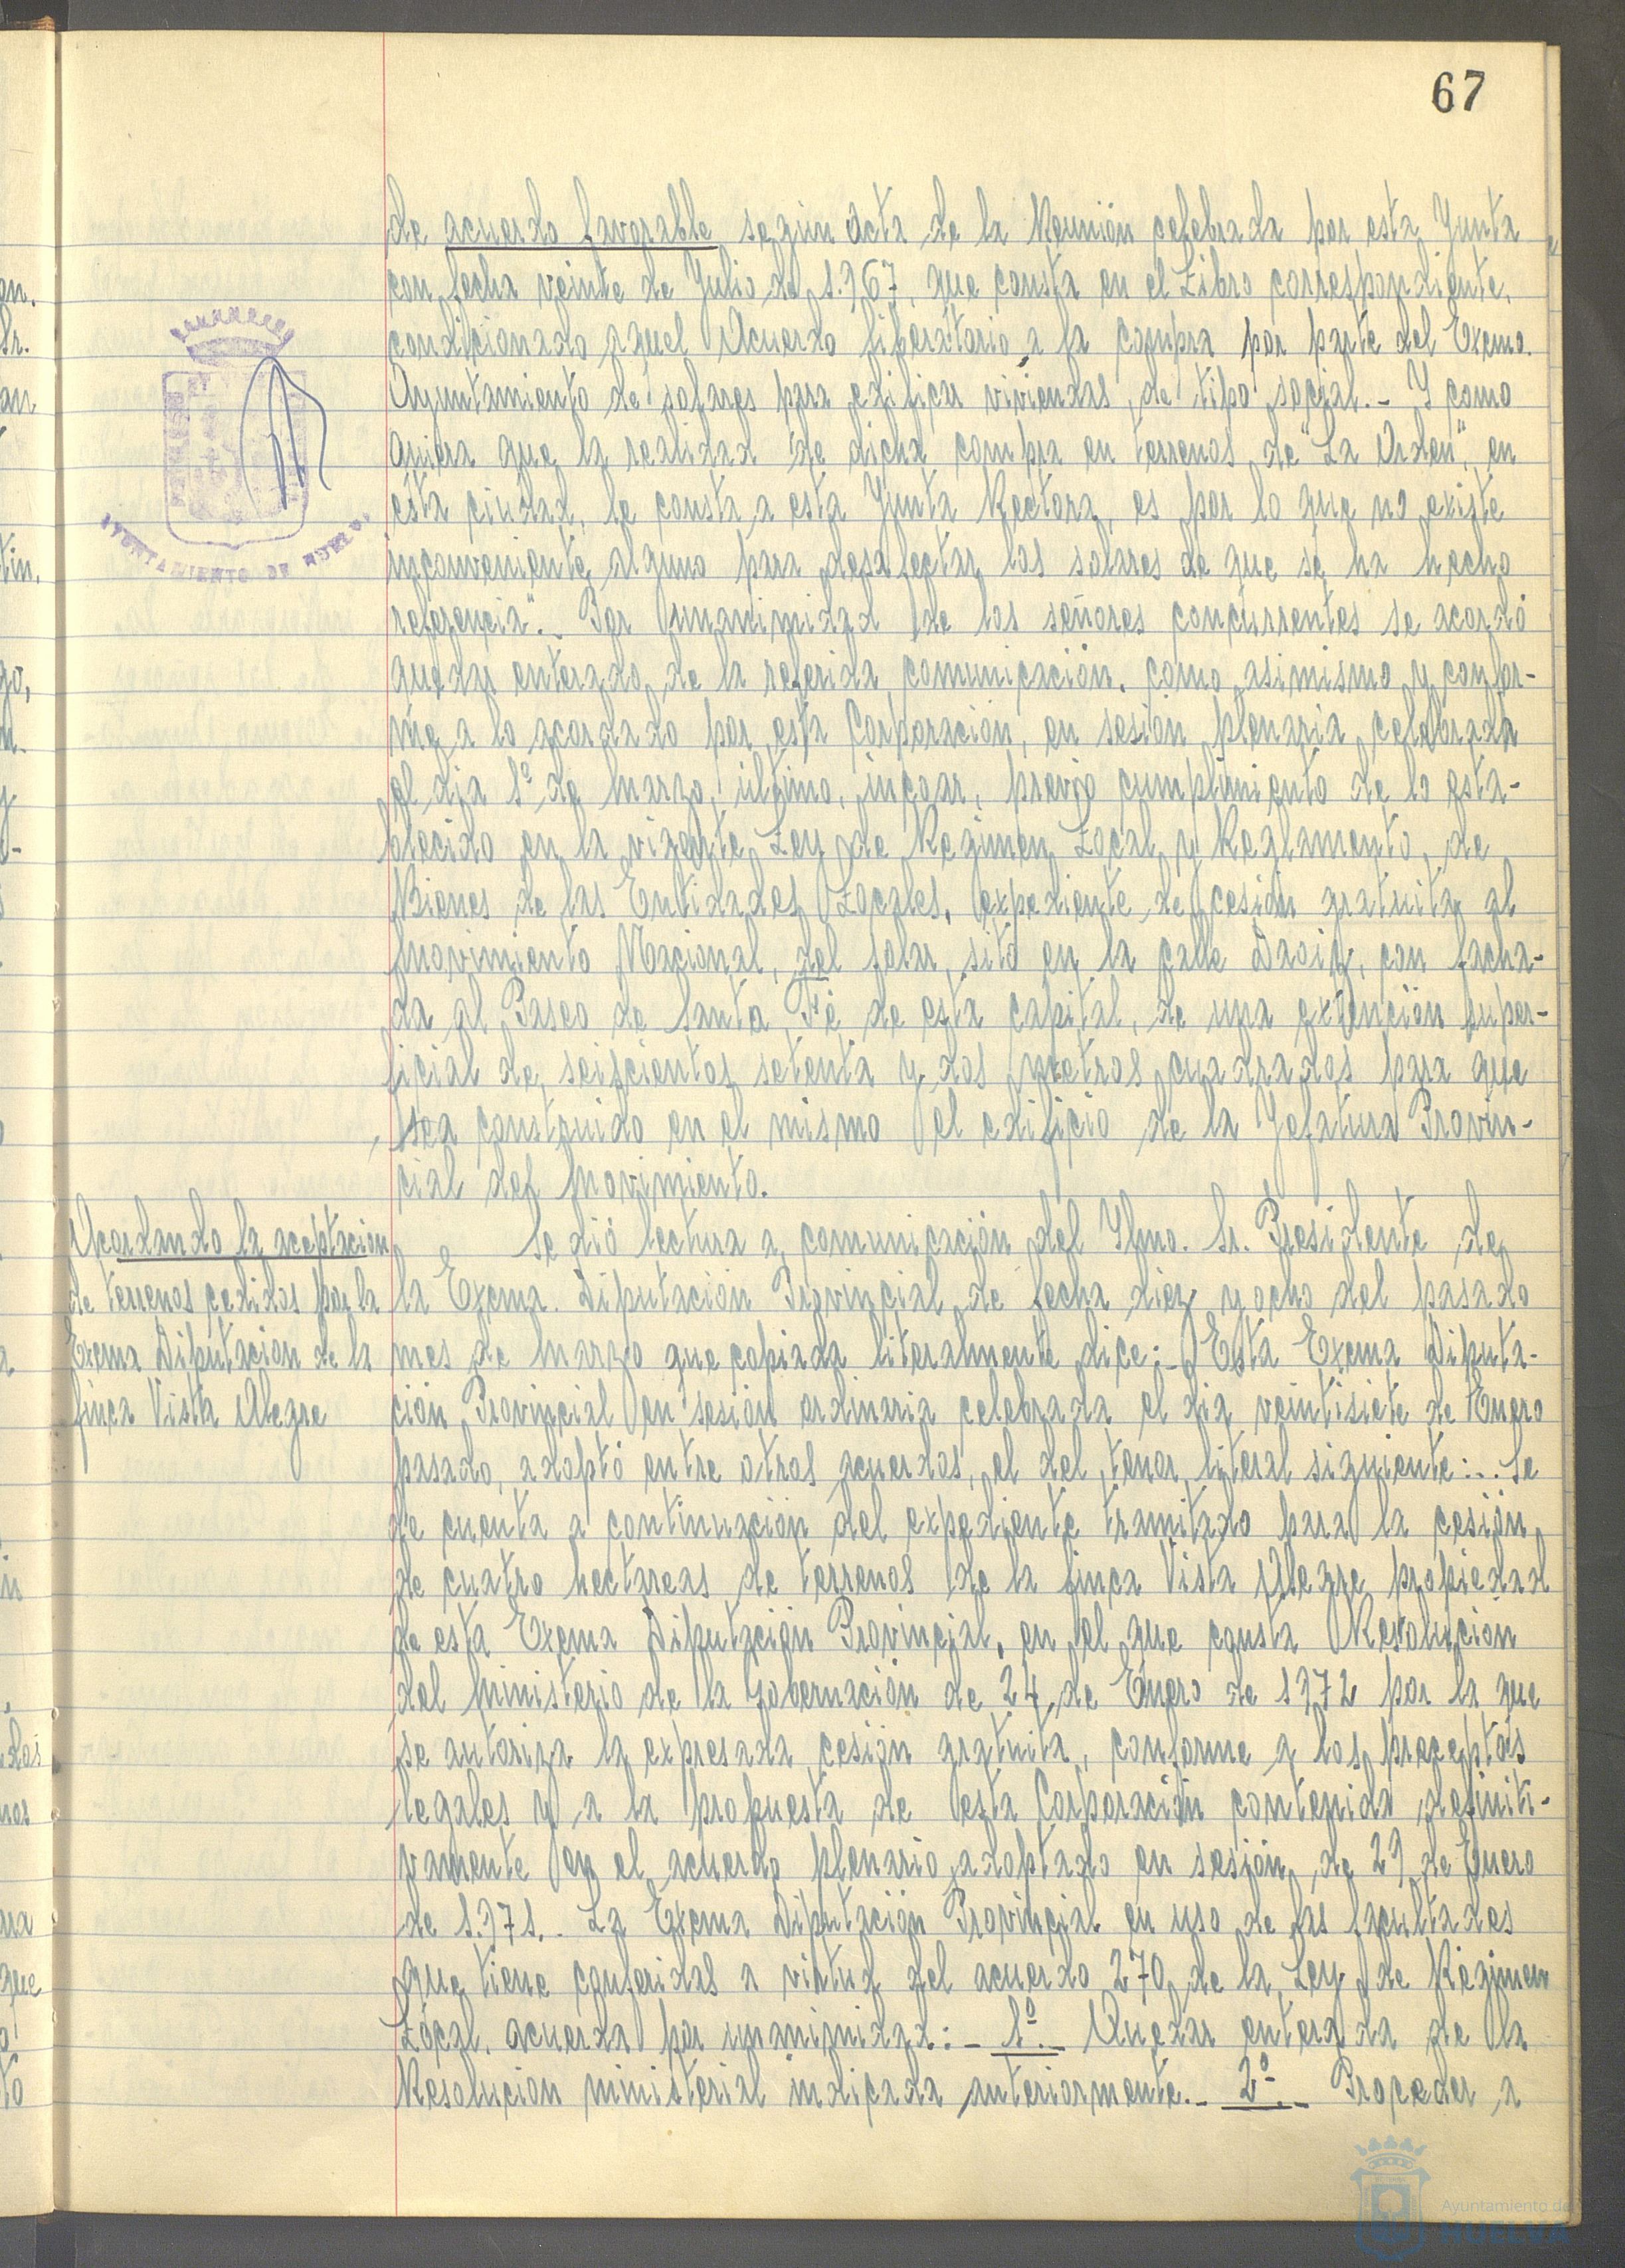 67
de acuerdo favorable según Acta de la Reunión celebrada por esta Junta
con fecha veinte de Julio de 1.967, que consta en el Libro correspondiente,
condicionado aquel Acuerdo liberatorio a la compra por parte del Excmo.
Ayuntamiento de solares para edificar viviendas de tipo social.- Y como
quiera que la realidad de dicha compra en terrenos de "La Orden", en
esta ciudad, le consta a esta Junta Rectora, es por lo que no existe
inconveniente alguno para desafectar los solares de que se ha hecho
referencia".- Por unanimidad de los señores concurrentes se acordó
quedar enterado de la referida comunicación, como asimismo y confor-
me a lo acordado por esta Corporación, en sesión plenaria celebrada
el día 1º de Marzo, último, incoar, previo cumplimiento de lo esta-
blecido en la vigente Ley de Regimen Local y Reglamento de
Bienes de las Entidades Locales, expediente de cesión gratuita al
Movimiento Nacional, del solar, sito en la calle Daoiz, con facha-
da al Paseo de Santa Fé de esta capital, de una extención super-
ficial de seiscientos setenta y dos metros cuadrados para que
sea construido en el mismo el edificio de la Jefatura Provin-
cial del Movimiento.
Acordando la aceptacion
de terrenos cedidos por la
Excma Diputacion de la
finca Vista Alegre
Se dió lectura a comunicación del Ilmo. Sr. Presidente de
la Excma. Diputación Provincial de fecha diez y ocho del pasado
mes de Marzo que copiada literalmente dice:- Esta Excma Diputa-
ción Provincial en sesión ordinaria celebrada el dia veintisiete de Enero
pasado, adoptó entre otros acuerdos, el del tenor literal siguiente:.. Se
de cuenta a continuación del expediente tramitado para la cesión
de cuatro hectareas de terrenos de la finca Vista Alegre propiedad
de esta Excma Diputación Provincial, en el que consta Resolucion
del Ministerio de la Gobernación de 24 de Enero de 1972 por la que
se autoriza la expresada cesión gratuita, conforme a los preceptos
legales y a la propuesta de esta Corporación contenida definiti-
vamente en el acuerdo plenario adoptado en sesión de 29 de Enero
de 1.971.- La Excma Diputación Provincial en uso de las facultades
que tiene conferidas a virtud del acuerdo 270 de la Ley de Régimen
Local, acuerda por unanimidad:- 1º.- Quedar enterada de la
Resolucion ministerial indicada anteriormente.- 2º.- Proceder a
AYUNTAMIENTO DE HUELVA
Ayuntamiento de
HUELVA